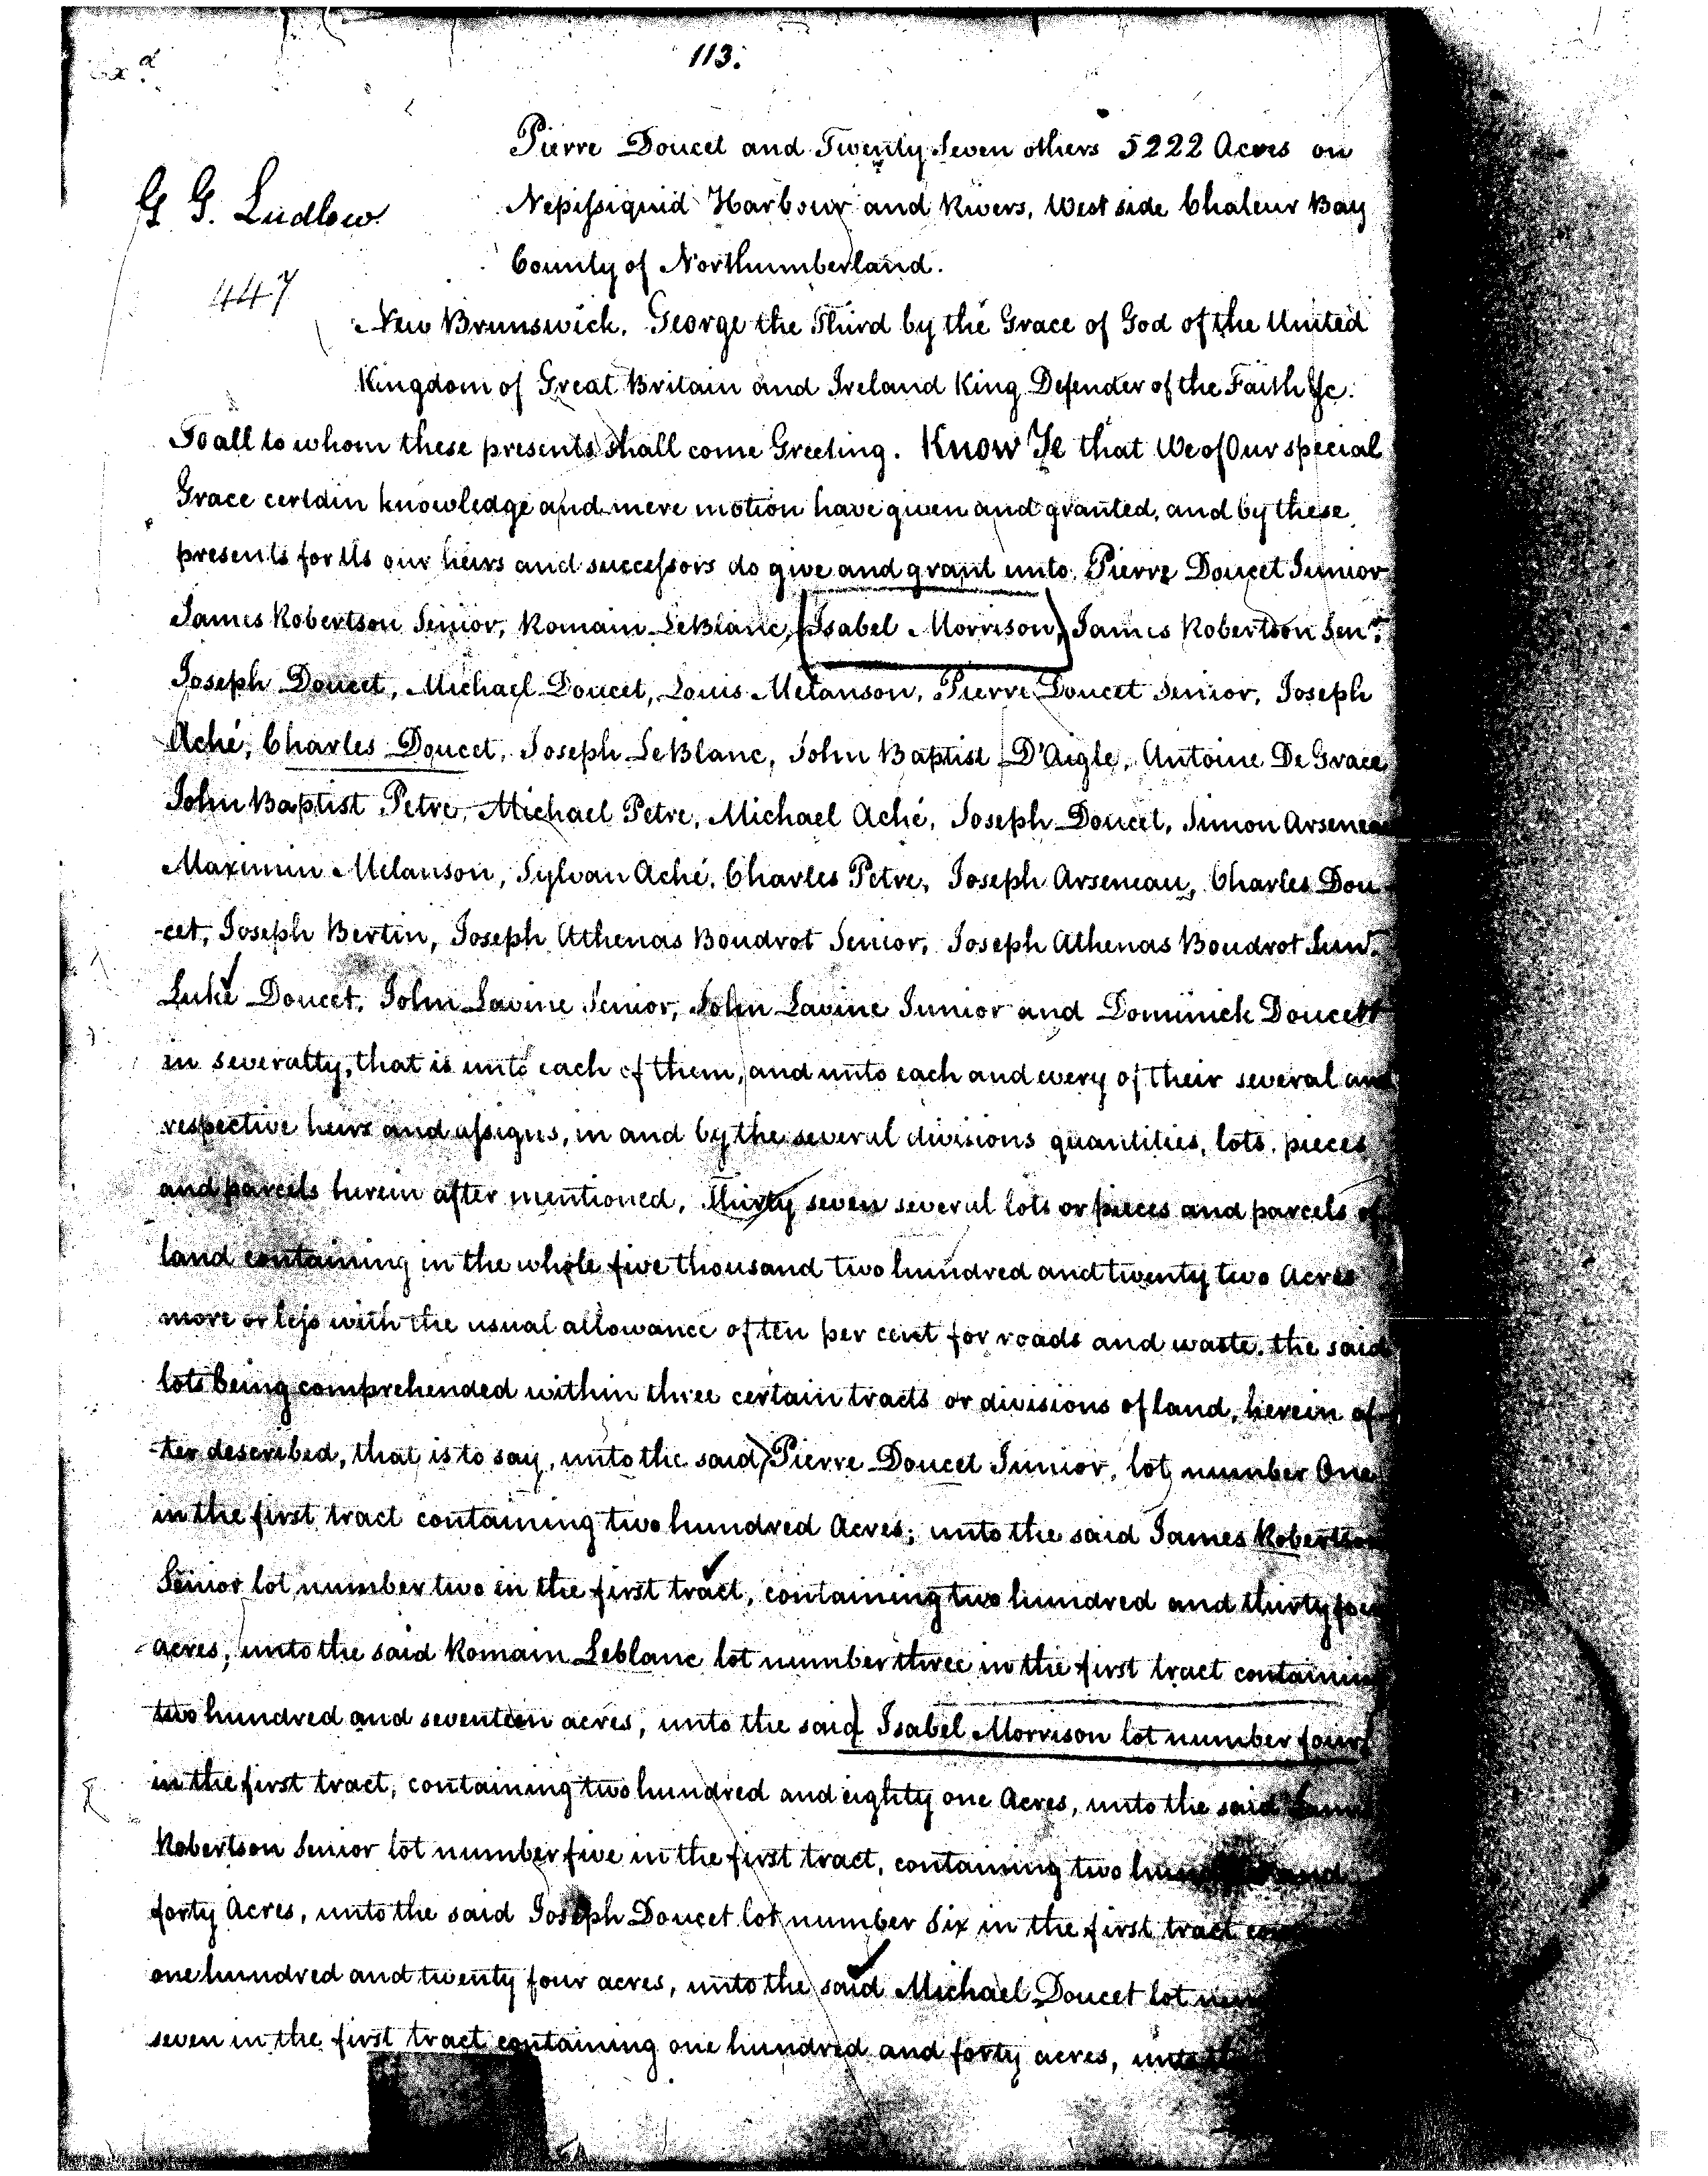 113.
Pierre Doucet and Twenty Seven others 5222 Acres on
G G. Ludlow
Nepissiguid Harbour and Rivers, West side Chaleur Bay
County of Northumberland.
447
New Brunswick. George the Third by the Grace of God of the United
Kingdom of Great Britain and Ireland King Defender of the Faith &c.
To all to whom these presents shall come Greeting. Know Ye that We of Our special
Grace certain knowledge and mere motion have given and granted, and by these
presents for Us our heirs and successors do give and grant unto Pierre Doucet Junior
James Robertson Senior, Romain LeBlanc, Isabel Morrison, James Robertson Senr.
Joseph Doucet, Michael Doucet, Louis Melanson, Pierre Doucet Senior, Joseph
Aché, Charles Doucet, Joseph LeBlanc, John Baptist D'Aigle, Antoine De Grace
John Baptist Petre, Michael Petre, Michael Aché, Joseph Doucet, Simon Arseneau
Maximin Melanson, Sylvan Aché, Charles Petre, Joseph Arseneau, Charles Dou
-cet, Joseph Bertin, Joseph Athenas Boudrot Senior, Joseph Athenas Boudrot Junr.
Luke Doucet, John Lavine Senior, John Lavine Junior and Dominick Doucett
in severalty, that is unto each of them, and unto each and every of their several and
respective heirs and assigns, in and by the several divisions quantities, lots, pieces
and parcels herein after mentioned, Thirty seven several lots or pieces and parcels of
land containing in the whole five thousand two hundred and twenty two Acres
more or less with the usual allowance of ten per cent for roads and waste. the said
lots being comprehended within three certain tracts or divisions of land, herein af
-ter described, that is to say, unto the said Pierre Doucet Junior, lot number One
in the first tract containing two hundred Acres; unto the said James Robertson
Senior lot number two in the first tract, containing two hundred and thirty four
acres, unto the said Romain Leblanc lot number three in the first tract containing
two hundred and seventeen acres, unto the said Isabel Morrison lot number four
in the first tract, containing two hundred and eighty one Acres, unto the said James
Robertson Senior lot number five in the first tract, containing two hundred and
forty Acres, unto the said Joseph Doucet lot number Six in the first tract
one hundred and twenty four acres, unto the said Michael Doucet lot
seven in the first tract containing one hundred and forty acres, unto